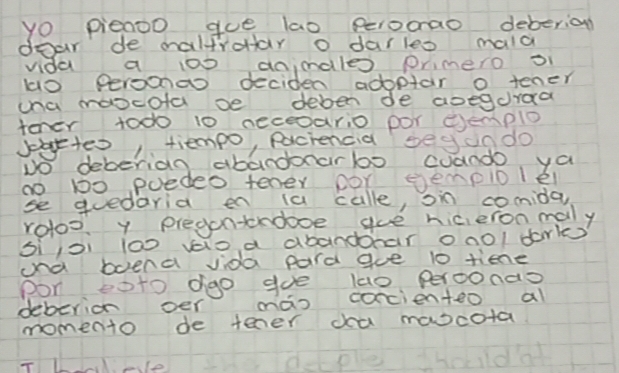 yo pienso que las personas deberian
dejar de maltratar o darles mala
vida a los animales primero si
las personas deciden adoptar o tener
una mascota se deben de asegurara
tener todo lo necesario por ejemplo
juguetes, tiempo, paciencia segundo
no deberian abandonarlos cuando ya
no los puedes tener por ejemplo él
se quedaria en la calle, sin comida,
rotos y preguntandose qué hicieron mal y
si, si los vas a abandonar o no darles
una buena vida para que lo tiene
por esto digo que las personas
deberian ser más concientes al
momento de tener una mascota
I believe people should